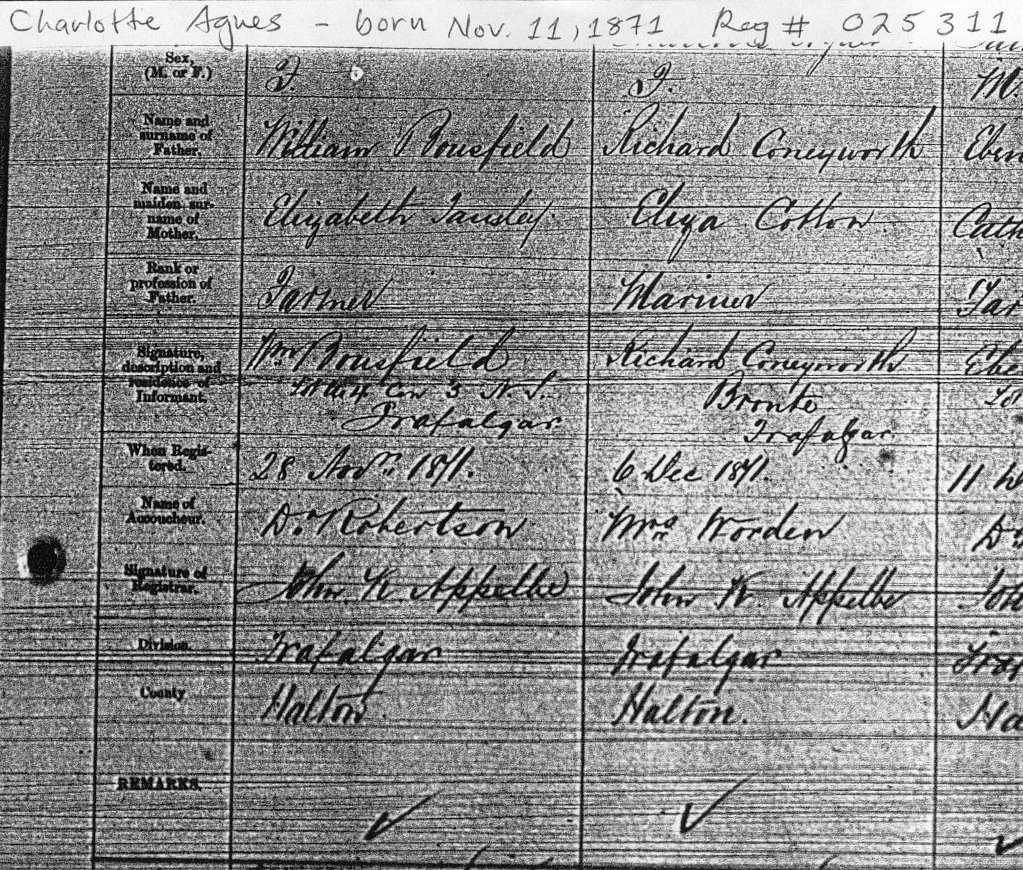 Charlotte Agnes - born Nov. 11, 1871 Reg # 025311
Sex,
(M. or F.)
F.
F.
M.
Name and
surname of
Father.
William Bousfield
Richard Coneyworth
Eben
Name and
maiden sur-
name of
Mother.
Elizabeth Tansley
Eliza Cotton
Cath
Rank or
profession of
Father.
Farmer
Mariner
Far
Signature,
description and
residence of
Informant.
Wm Bousfield
Lot 14 Con 3 N.S.
Trafalgar
Richard Coneyworth
Bronte
Trafalgar
Ebe
When Regis-
tered.
28 Novr. 1871.
6 Dec 1871.
11
Name of
Accoucheur.
Dr Robertson
Mrs Worden
Signature of
Registrar.
John K Appelbe
John K. Appelbe
Joh
Division.
Trafalgar
Trafalgar
Traf
County
Halton
Halton.
Ha
REMARKS.